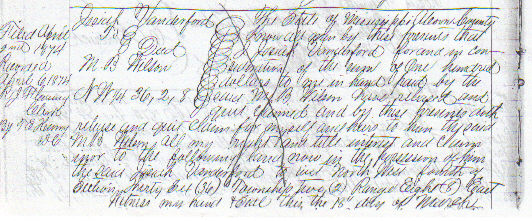 Filed April
2nd 1874
Recorded
April 6 1874
Clerk
D.C.
Josiah Vanderford
To } Deed
M. B. Wilson
NW 1/4 36, 2, 8
The State of Mississippi County
Know all men by these presents that
I Josiah Vanderford for and in con-
sideration of the sum of One hundred
dollars to me in hand paid by the
said M. B. Wilson has released and
quit claimed and by these presents doth
release and quit claim for myself and heirs to him the said
M. B. Wilson all my right and title interest and claim
to the following land now in the possession of him
the said Josiah Vanderford to wit North West fourth of
Section thirty six (36) Township two (2) Range Eight (8) East
Witness my hand & seal this the 18th day of March